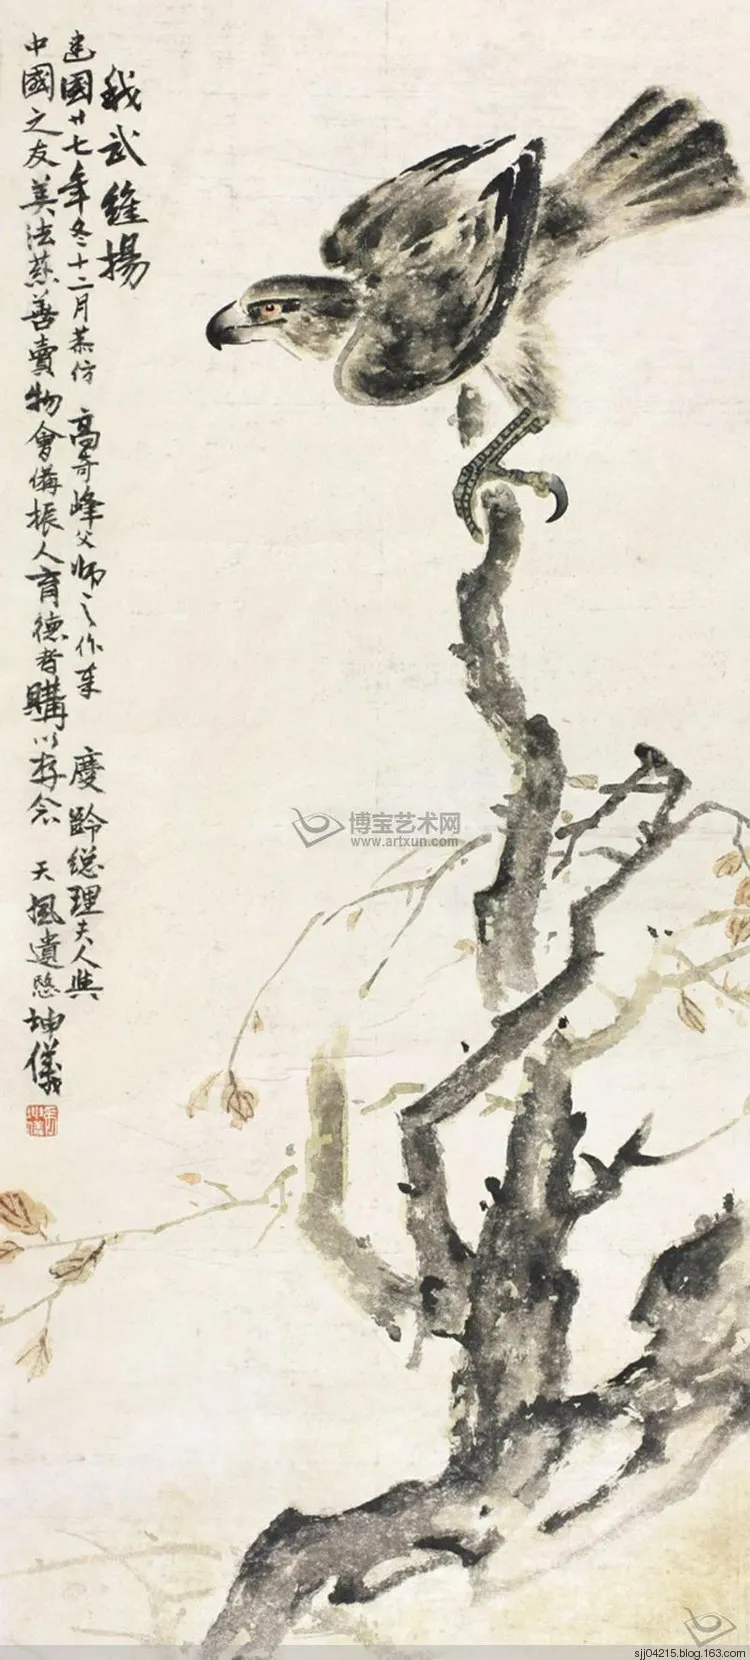 我武維揚
建國廿七年冬十二月恭仿 高奇峰父師之作奉 慶齡總理夫人與
中國之友美法慈善賣物會備振人育德者購以存念 天風遺愍坤儀
博宝艺术网
www.artxun.com
sjj04215.blog.163.com